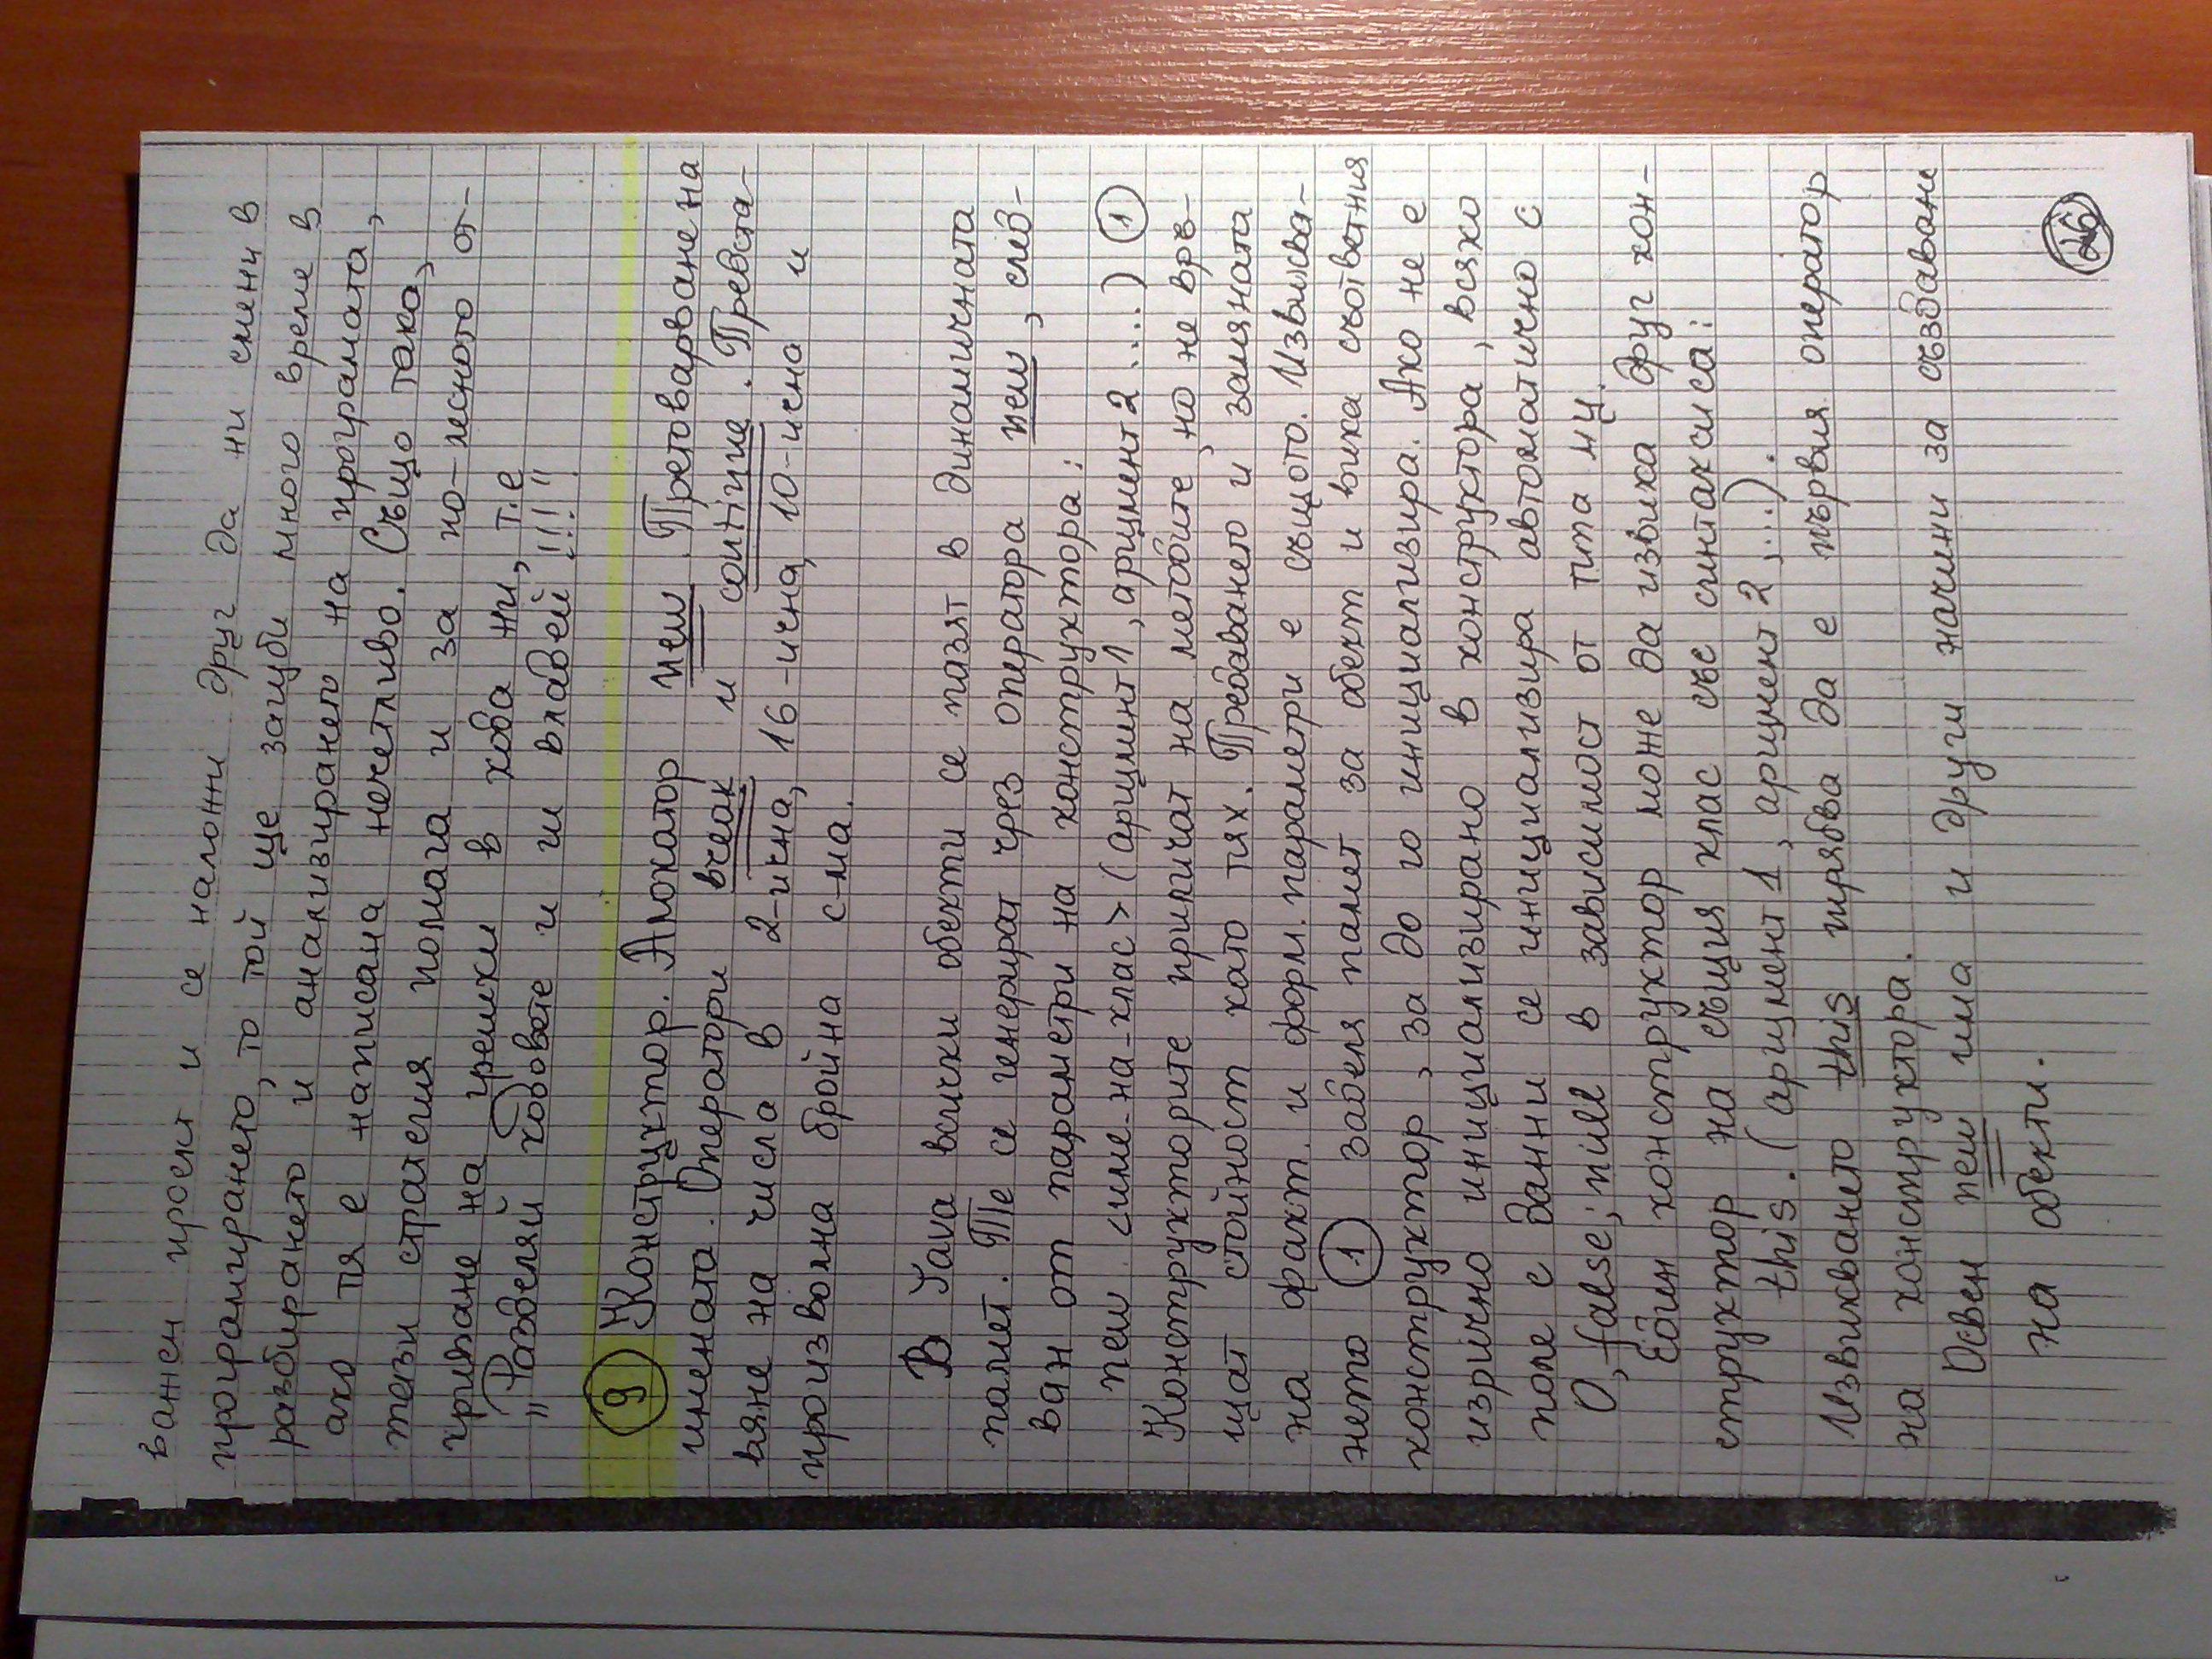 важен проект и се наложи друг да ни смени в
програмирането, то той ще загуби много време в
разбирането и анализирането на програмата,
ако тя е написана нечетливо. Също така,
тези стратегия помага и за по-лесното от-
криване на грешки в кода ни, т.е
"Разделяй ходовете и ги владей!!!!"
⑨ Конструктор. Алокатор new. Претоварване на
имената. Оператори break и continue. Предста-
вяне на числа в 2-ична, 16-ична, 10-ична и
произволна бройна с-ма.
В Java всички обекти се пазят в динамичната
памет. Те се генерират чрез оператора new, след-
ван от параметри на конструктора:
new <име-на-клас> (аргумент1, аргумент2....) ①
Конструкторите приличат на методите, но не връ-
щат стойност като тях. Предаването и замяната
на факт. и форм. параметри е същото. Извиква-
нето ① заделя памет за обект и вика съответния
конструктор, за да го инициализира. Ако не е
изрично инициализирано в конструктора, всяко
поле с данни се инициализира автоматично с
0, false; null в зависимост от типа му.
Един конструктор може да извика друг кон-
структор на същия клас със синтаксиса:
this. (аргумент1, аргумент2,...).
Извикването this трябва да е първия оператор
на конструктора.
Освен new има и други начини за създаване
на обекти.
26